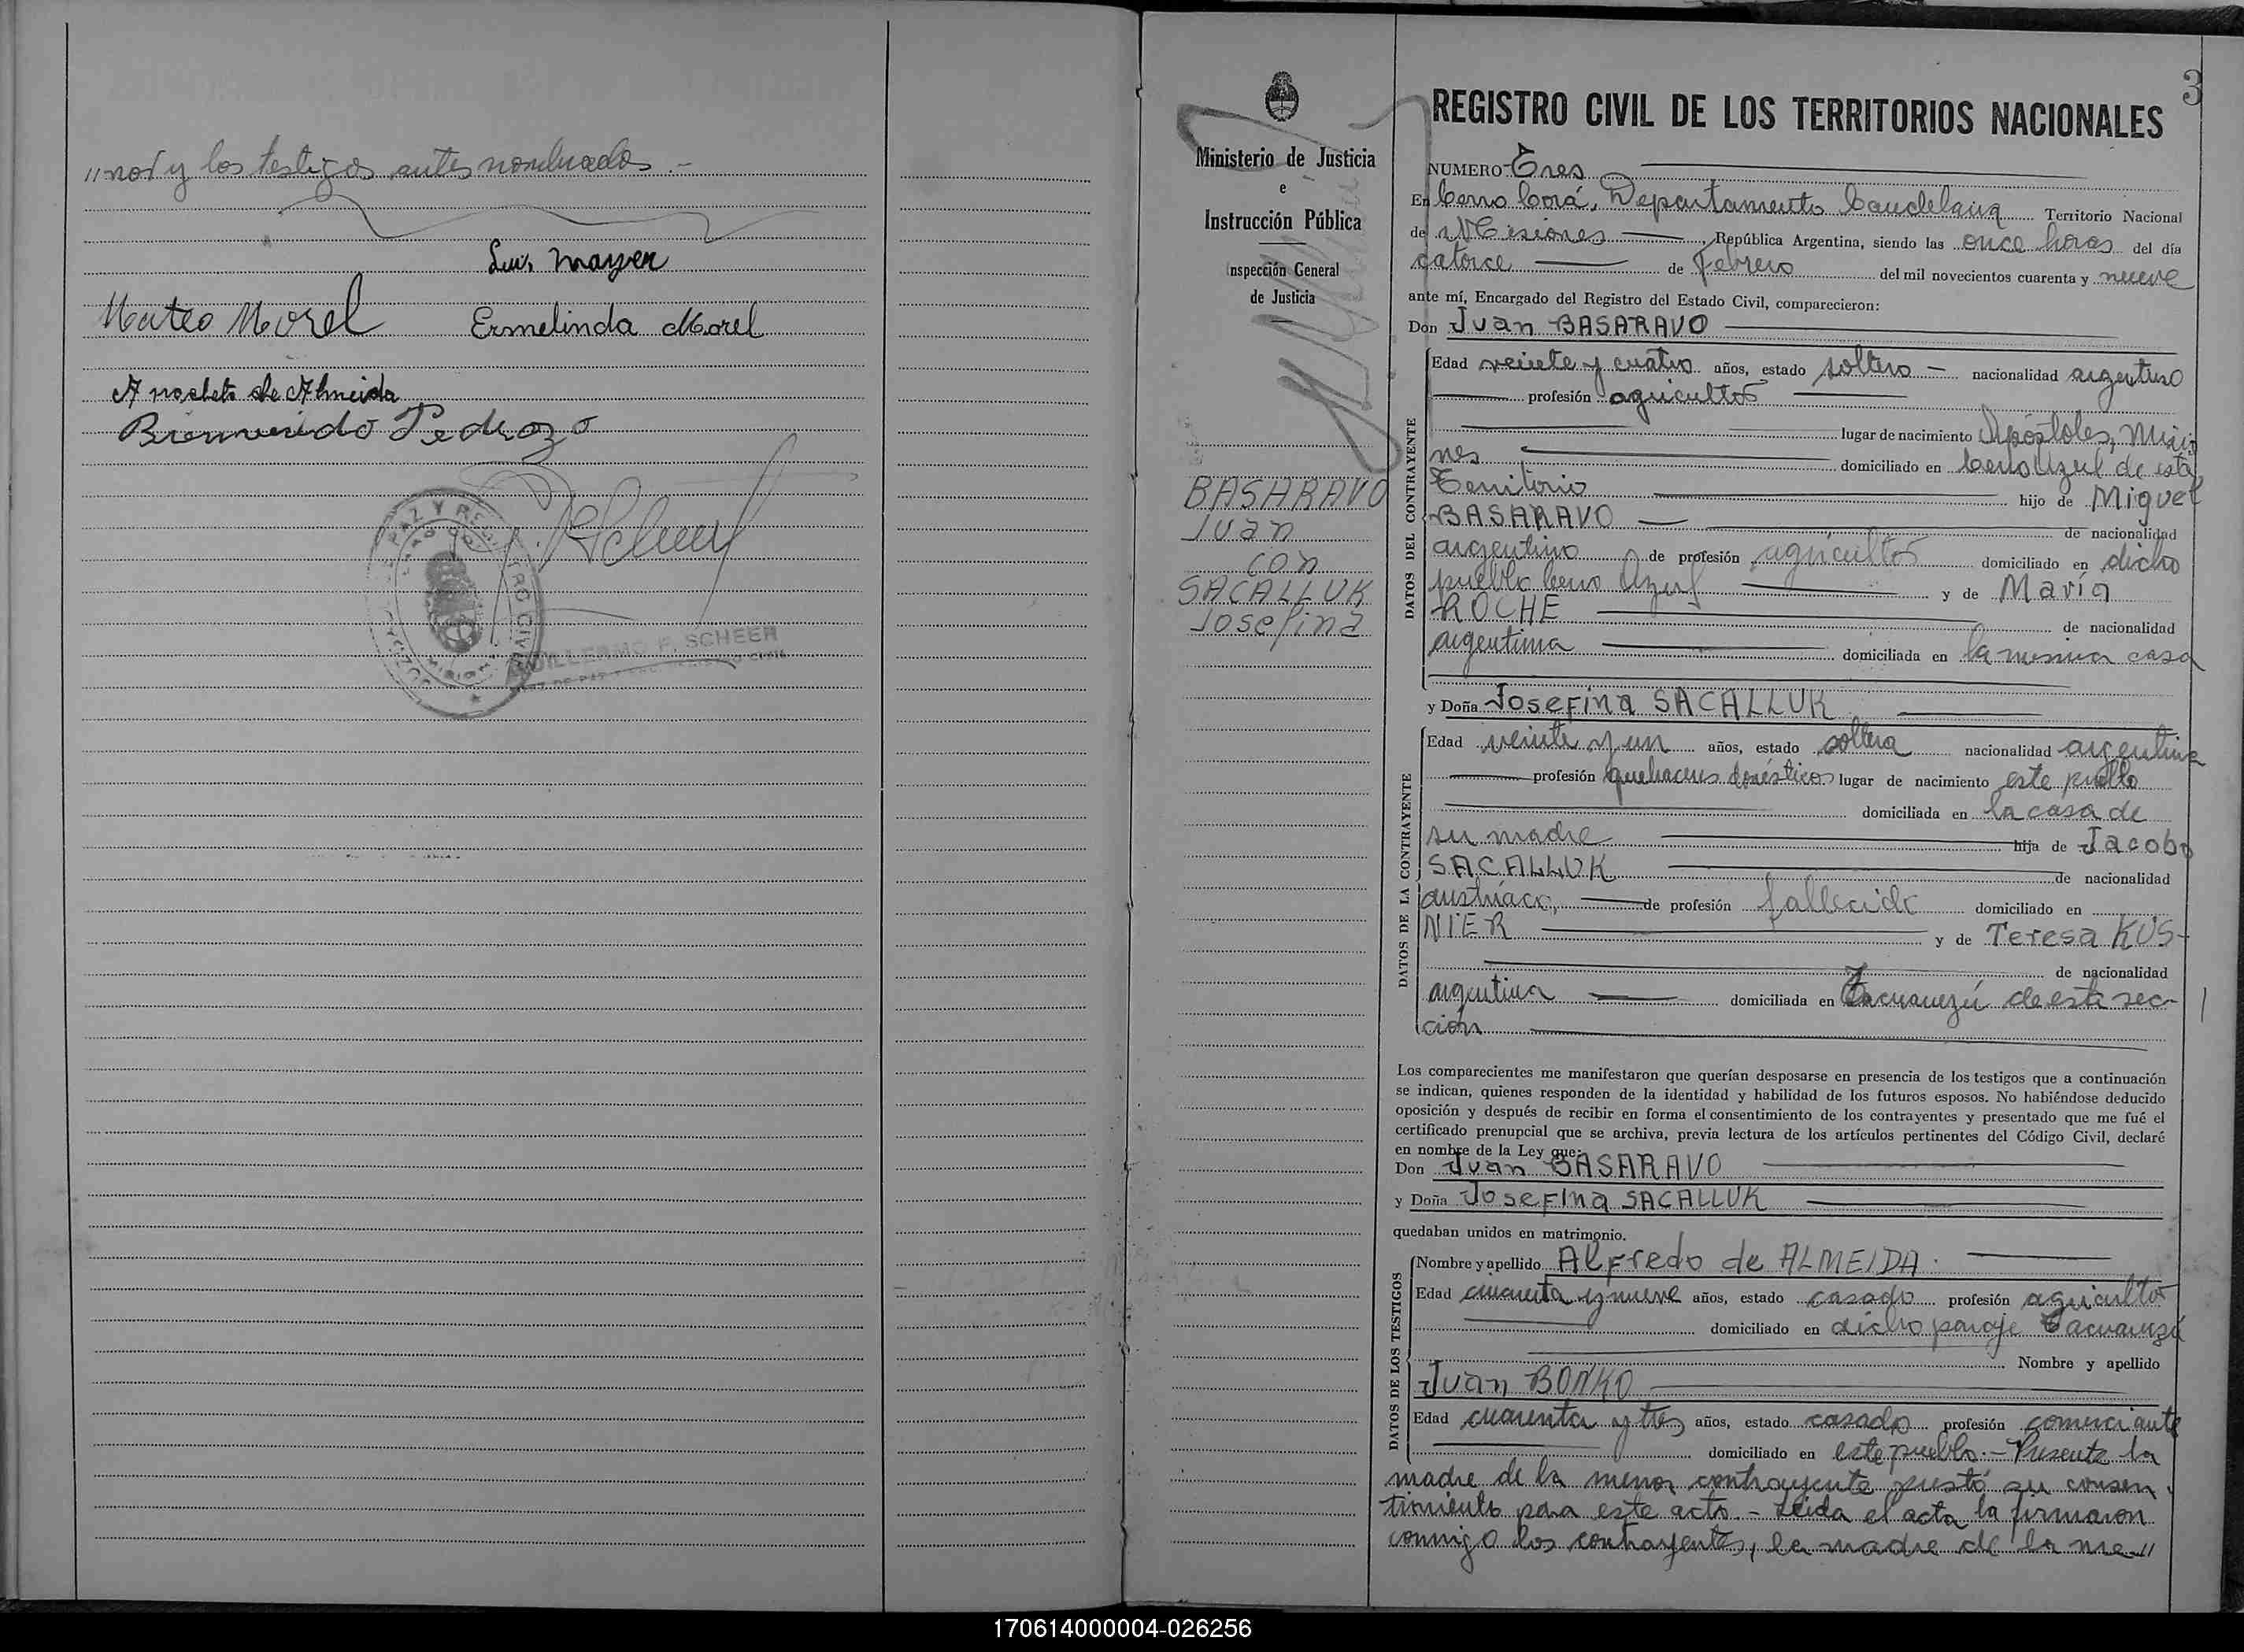 "nor y los testigos antes nombrados.-
Luis Mayer
Mateo Morel Ermelinda Morel
Anacleto de Almeida
Bienvenido Pedrozo
GUILLERMO F. SCHEER
3
Ministerio de Justicia
e
Instrucción Pública
Inspección General
de Justicia
BASARAVO
Juan
con
SACALLUK
Josefina
REGISTRO CIVIL DE LOS TERRITORIOS NACIONALES
NUMERO Tres
En Cerro Corá, Departamento Candelaria Territorio Nacional
de Misiones, República Argentina, siendo las once horas del día
catorce de Febrero del mil novecientos cuarenta y nueve
ante mí, Encargado del Registro del Estado Civil, comparecieron:
Don Juan BASARAVO
DATOS DEL CONTRAYENTE
Edad veinte y cuatro años, estado soltero - nacionalidad argentino
profesión agricultor
lugar de nacimiento Apóstoles, Misio
nes domiciliado en Cerro Azul de este
Territorio hijo de Miguel
BASARAVO de nacionalidad
argentino de profesión agricultor domiciliado en dicho
pueblo Cerro Azul y de María
ROCHE de nacionalidad
argentina domiciliada en la misma casa
y Doña Josefina SACALLUK
DATOS DE LA CONTRAYENTE
Edad veinte y un años, estado soltera nacionalidad argentina
profesión quehaceres domésticos lugar de nacimiento este pueblo
domiciliada en la casa de
su madre hija de Jacobo
SACALLUK de nacionalidad
austríaco, de profesión fallecido domiciliado en
NIER y de Teresa KUS-
de nacionalidad
argentina domiciliada en Tacuaruzú de esta sec-
ción
Los comparecientes me manifestaron que querían desposarse en presencia de los testigos que a continuación
se indican, quienes responden de la identidad y habilidad de los futuros esposos. No habiéndose deducido
oposición y después de recibir en forma el consentimiento de los contrayentes y presentado que me fué el
certificado prenupcial que se archiva, previa lectura de los artículos pertinentes del Código Civil, declaré
en nombre de la Ley que:
Don Juan BASARAVO
y Doña Josefina SACALLUK
quedaban unidos en matrimonio.
DATOS DE LOS TESTIGOS
Nombre y apellido Alfredo de ALMEIDA.
Edad cincuenta y nueve años, estado casado profesión agricultor
domiciliado en dicho paraje Tacuaruzú
Nombre y apellido
Juan BONKO
Edad cuarenta y tres años, estado casado profesión comerciante
domiciliado en este pueblo.- Presente la
madre de la menor contrayente prestó su consen
timiento para este acto.- Leida el acta la firmaron
conmigo los contrayentes, la madre de la me"
170614000004-026256